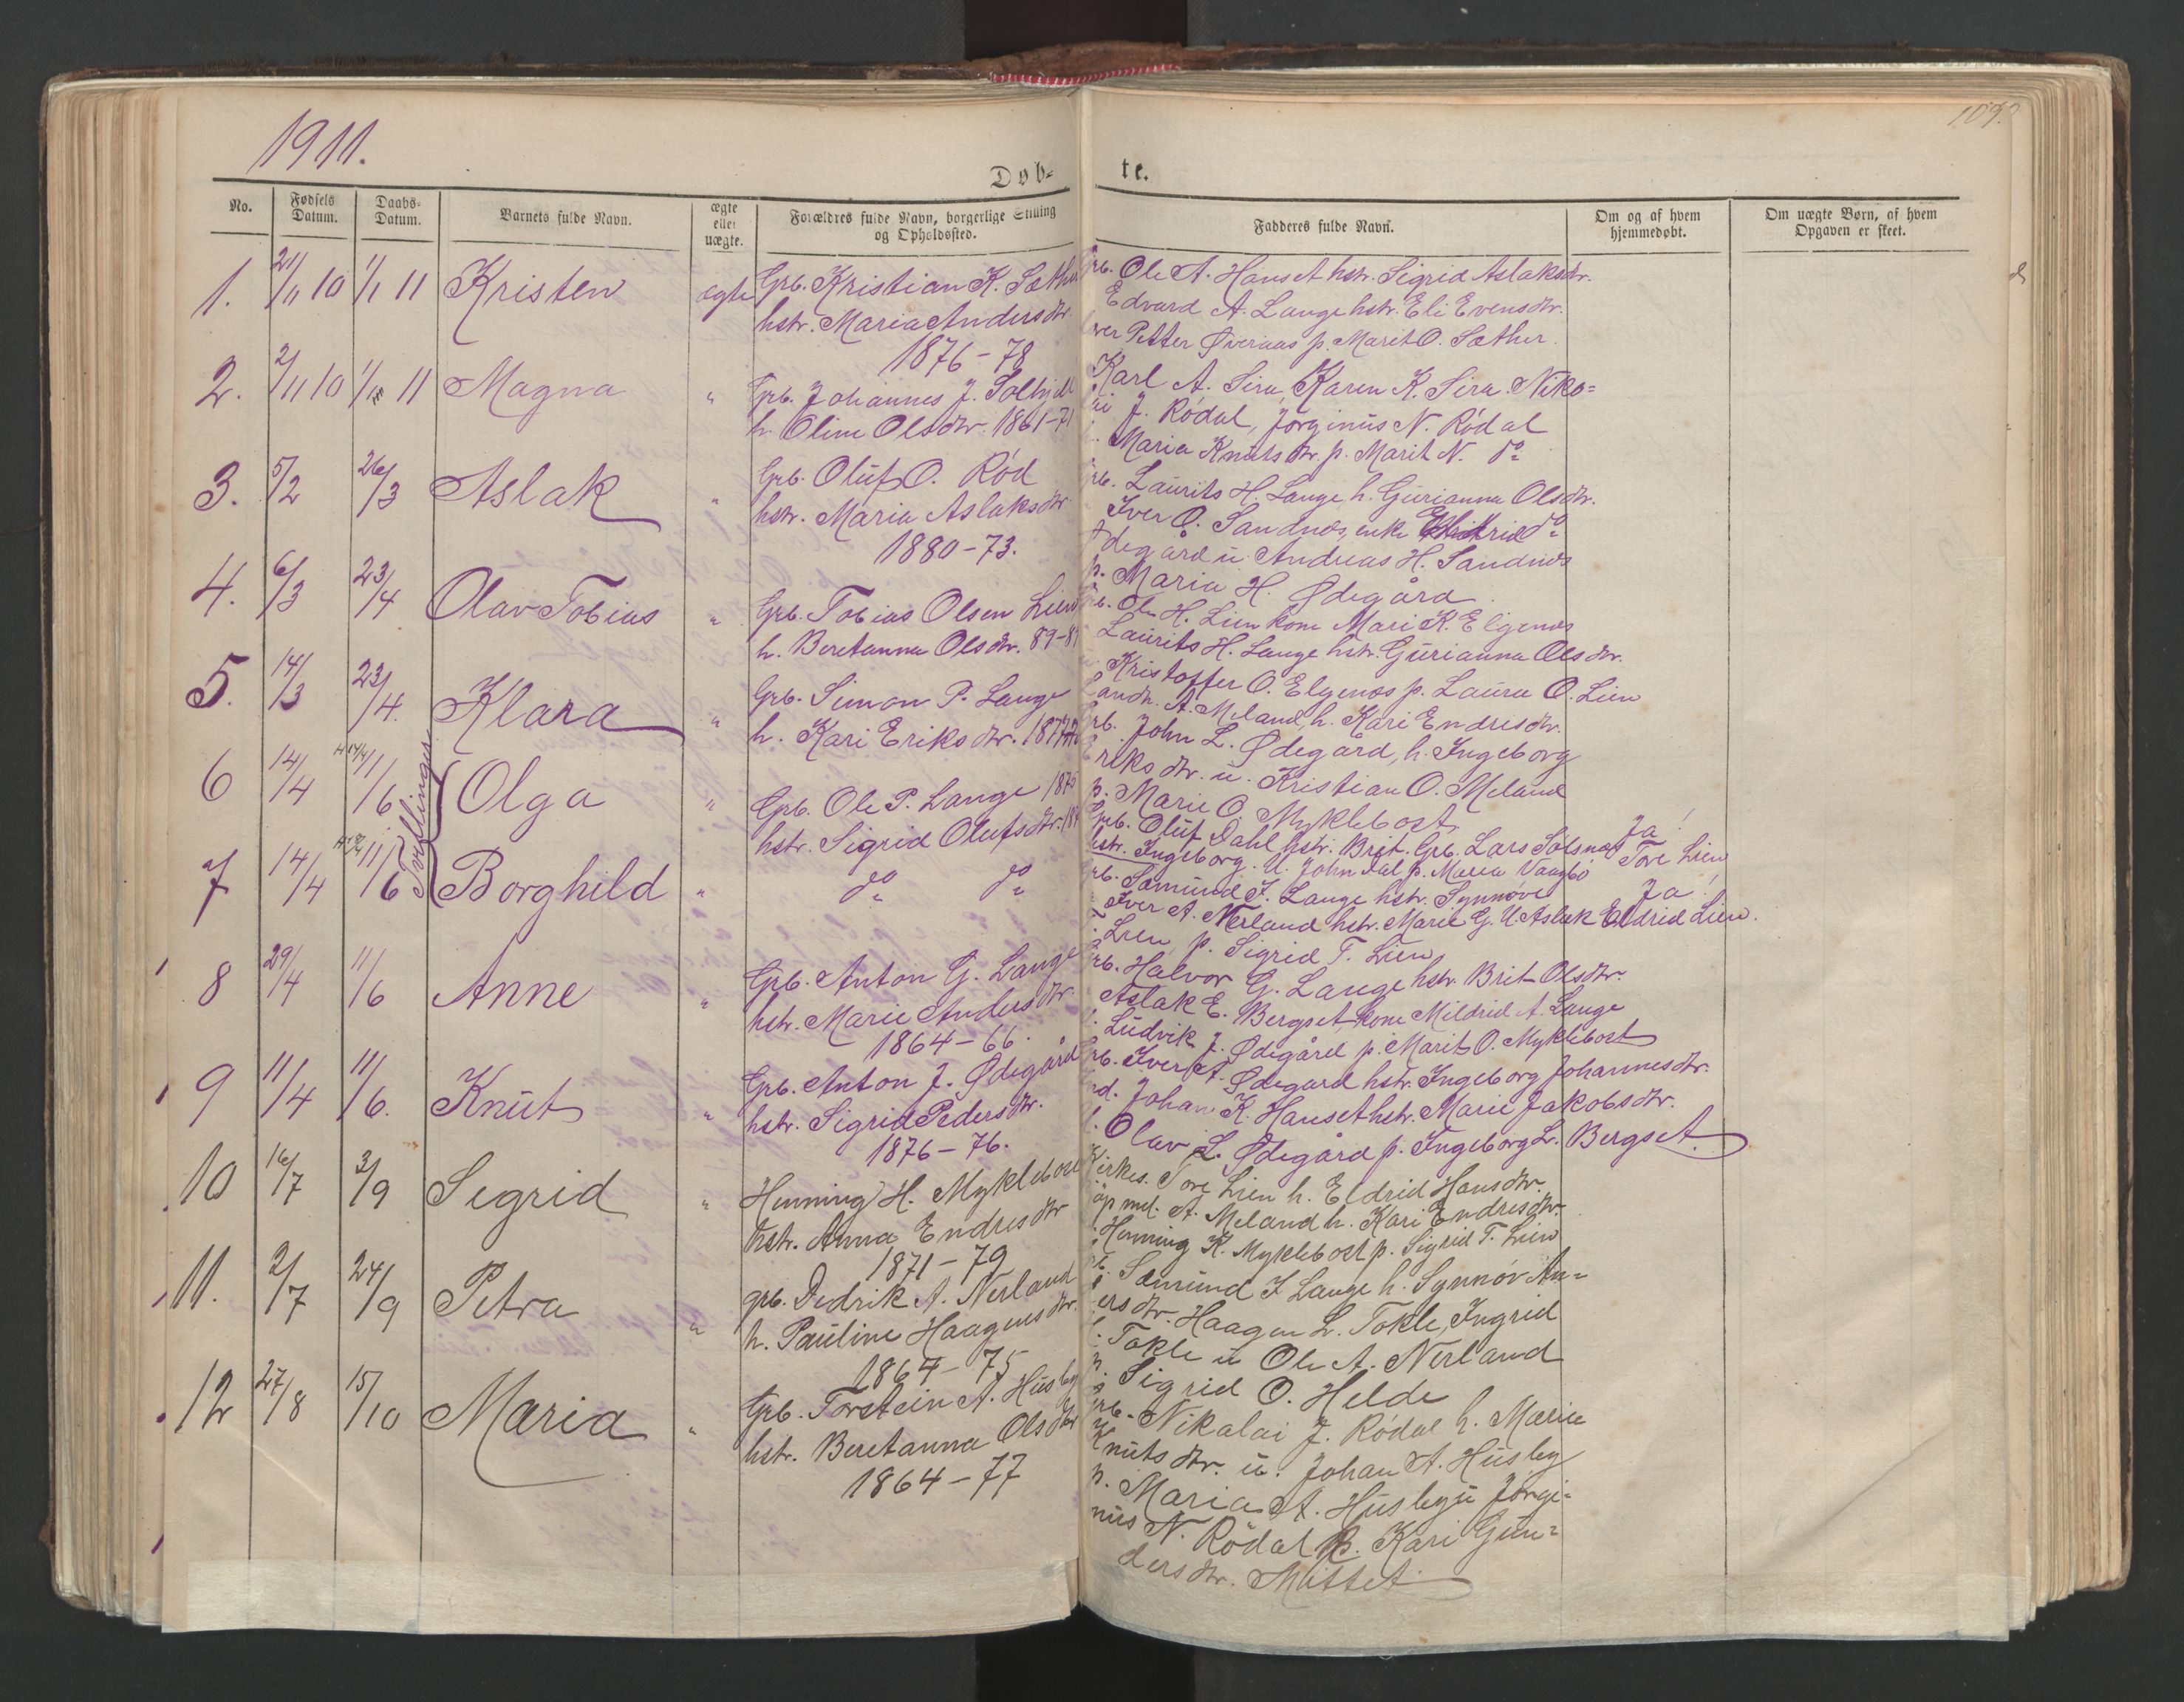 1911.
109.
Døb-
te.
No.
Fødsels Datum.
Daabs-Datum.
Barnets fulde Navn.
ægte eller uægte.
Forældres fulde Navn, borgerlige Stilling og Opholdssted.
Fadderes fulde Navn.
Om og af hvem hjemmedøbt.
Om uægte Børn, af hvem Opgaven er skeet.
1. 21/11 10 1/1 11 Kristen ægte Grb. Kristian K. Sæther
hstr. Maria Andersdtr.
1876-78
Grb. Ole A. Hanset hstr. Sigrid Aslaksdtr.
Edvard A. Lange hstr. Eli Evensdtr.
Petter Øveraas p. Maret O. Sæther.
2. 2/11 10 1/1 11 Magna " Grb. Johannes J. Solhjell
h. Oline Olsdtr. 1861-71
Karl A. Sira, Karen K. Sira. Niko=
lai J. Rødal, Jørginus N. Rødal
Maria Knutsdtr. p. Marit N. do
3. 5/2 26/3 Aslak " Grb. Oluf O. Rød
hstr. Maria Aslaksdtr
1880-73.
Grb. Laurits H. Lange h. Gurianna Olsdtr.
Iver O. Sandnes, enke do
Ødegård u. Andreas H. Sandnes
p. Maria H. Ødegård.
4. 6/3 23/4 Olav Tobias " Grb. Tobias Olsen Lien
h. Beretanna Olsdtr. 89-89
Grb. Ole H. Lien kone Mari K. Elgenes
Laurits H. Lange hstr. Gurianna Olsdtr.
Kristoffer O. Elgenes p. Laura O. Lien
5. 14/3 23/4. Klara " Grb. Simon P. Lange
h. Kari Eriksdtr.
Landh. A. Meland, h. Kari Endresdtr.
Grb. John L. Ødegård, h. Ingeborg
Eriksdtr. u. Kristian O. Meland
p. Marie O. Myklebost.
Tvillinger
6 14/4 11/6 Olga " Grb. Ole P. Lange 1875
hstr. Sigrid Olufsdtr.
Grb. Oluf Dahl hstr. Brit. Grb. Lars Solsnes
hstr. Ingeborg. U. John Dal p. Maria Vaagbø
Ja!
Tore Lien
7 14/4 11/6 Borghild " do do
Grb. Sæmund I. Lange hstr. Synnøve
Iver A. Nerland hstr. Marie G. U. Aslak
Lien, p. Sigrid T. Lien
Ja!
Eldrid Lien.
8 29/4 11/6 Anne " Grb. Anton G. Lange
hstr. Marie Andersdtr.
1864-66.
Grb. Halvor G. Lange hstr. Brit Olsdtr.
Aslak E. Bergset, kone Mildrid A. Lange
Ludvik J. Ødegård p. Marit O. Myklebost
9 11/4 11/6. Knut " Grb. Anton J. Ødegård
hstr. Sigrid Pedersdtr.
1876-76.
Grb. Iver A. Ødegard hstr. Ingeborg Johannesdtr.
Johan K. Hanset hstr. Marie Jakobsdtr.
Olav L. Ødegård p. Ingeborg L. Bergset
10 16/7 3/9 Sigrid " Henning H. Myklebost
hstr. Anna Endresdtr
1871-79
Kirkes. Tore Lien h. Eldrid Hansdtr.
A. Meland h. Kari Endresdtr.
Henning K. Myklebost p. Sigrid T. Lien
11. 2/7 24/9 Petra " grb. Dedrik A. Nerland
h. Pauline Haagensdtr.
1864-75
Grb. Sæmund I Lange h. Synnøv An=
dersdtr. Haagen L. Tokle, Ingrid
Tokle u Ole A. Nerland
p. Sigrid O. Helde
12 27/8 15/10 Maria " Grb. Torstein A. Husby
hstr. Beretanna Olsdtr
1864-77
Grb. Nikalai J. Rødal h. Marie
Knutsdtr. u. Johan A. Husby
p. Maria A. Husby u Jørgi=
nus N. Rødal p. Kari Gun=
dersdtr. Mittet